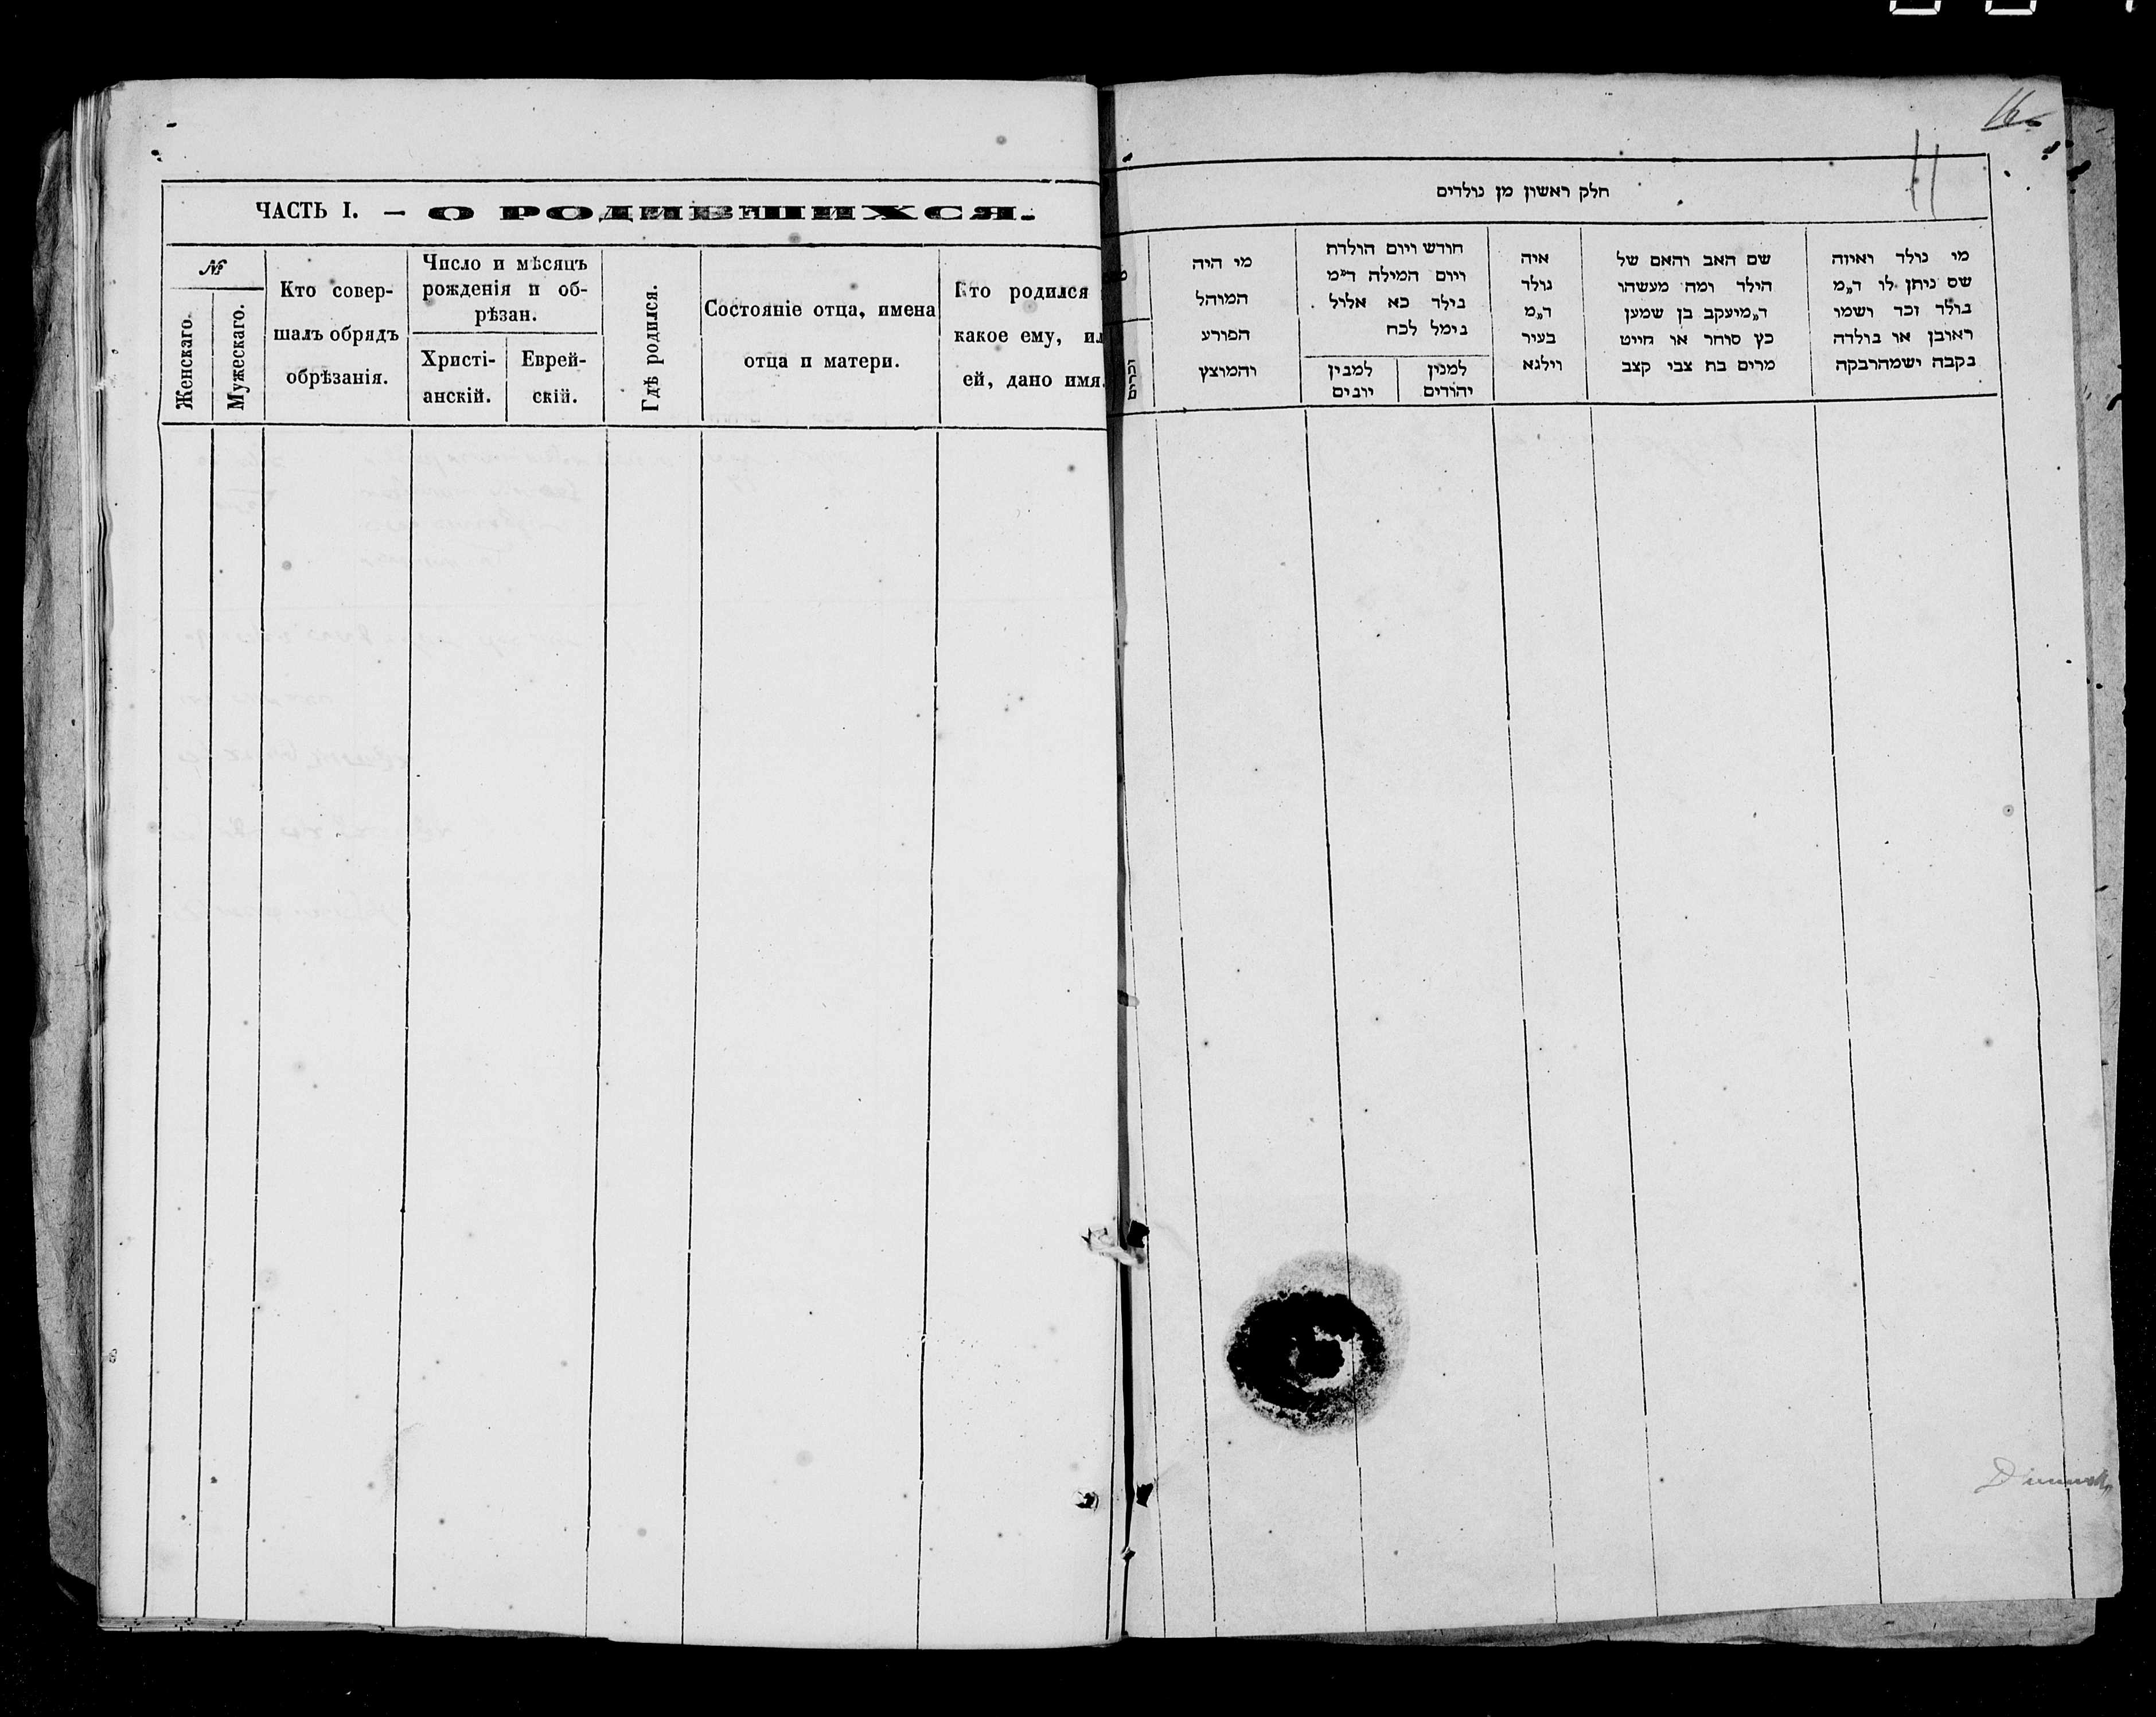 ЧАСТЬ I. — О РОДИВШИХСЯ.
№
Женскаго.
Мужескаго.
Кто совер-
шалъ обрядъ
обрѣзанія.
Число и мѣсяцъ
рожденія и об-
рѣзан.
Христі-
анскій.
Еврей-
скій.
Гдѣ родился.
Состояніе отца, имена
отца и матери.
Кто родился
какое ему, ил
ей, дано имя.
16
11
חלק ראשון מן נולדים
מי נולד ואיזה
שם ניתן לו ד״מ
נולד זכר ושמו
ראובן או נולדה
נקבה ישמהרבקה
שם האב והאם של
הילד ומה מעשהו
ד״מיעקב בן שמען
כץ סוחר או חייט
מרים בת צבי קצב
איה
נולד
ד״מ
בעיר
ווילנא
חודש ויום הולדת
ויום המילה ד״מ
נילד כא אלול .
נימל לכח
למנין
יהודים
למנין
יונים
מי היה
המוהל
הפורע
והמוצץ
זכרים